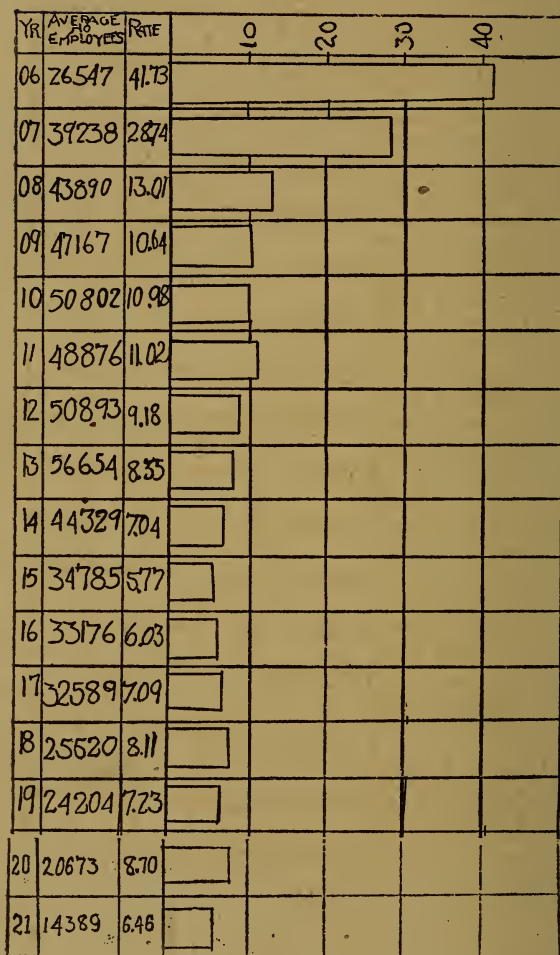 YR AVERAGE NO EMPLOYEES RATE 10 20 30 40
06 26547 41.73
07 39238 28.74
08 43890 13.01
09 47167 10.64
10 50802 10.98
11 48876 11.02
12 50893 9.18
13 56654 8.35
14 44329 7.04
15 34785 5.77
16 33176 6.03
17 32589 7.09
18 25620 8.11
19 24204 7.23
20 20673 8.70
21 14389 6.46